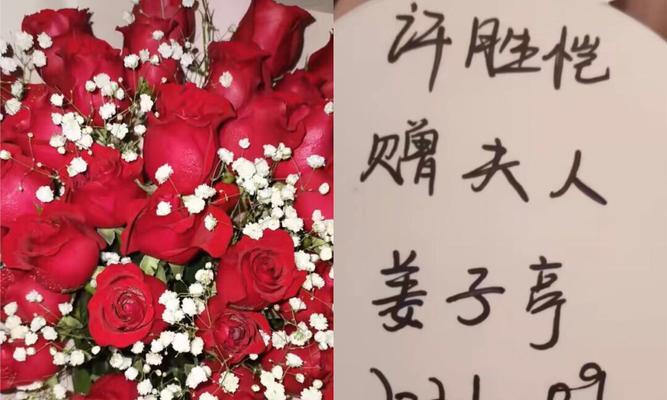 许胜恺
赠夫人
姜子亭
09